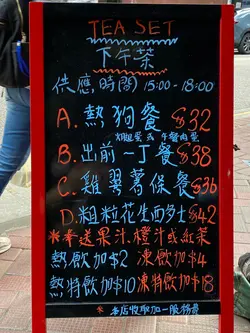 TEA SET
下午茶
供應時間 15:00-18:00
A. 熱狗餐 $32
煙腿蛋 或 午餐肉蛋
B. 出前一丁餐 $38
C. 雞翼薯條餐 $36
D. 粗粒花生西多士 $42
*奉送果汁、橙汁或紅茶
熱飲加$2 凍飲加$4
熱特飲加$10 凍特飲加$18
*本店收取加一服務費